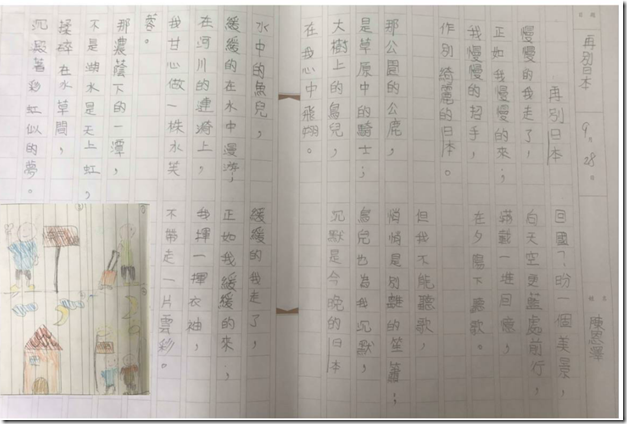 再別日本
9.28.
再別日本
慢慢的我走了,
正如我慢慢的來;
我慢慢的招手,
作別綺麗的日本。
那公園的公鹿,
是草原中的騎士;
大樹上的鳥兒,
在我心中飛翔。
水中的魚兒,
緩緩的在水中漫游;
在河川的漣漪上,
我甘心做一株水芙
蓉。
那濃蔭下的一潭,
不是湖水是天上虹,
揉碎在水草間,
沉澱著彩虹似的夢。
回國?盼一個美景,
向天空更藍處前行,
滿載一堆回憶,
在夕陽下聽歌。
但我不能聽歌,
悄悄是別離的笙簫;
鳥兒也為我沉默,
沉默是今晚的日本
緩緩的我走了,
正如我緩緩的來;
我揮一揮衣袖,
不帶走一片雲